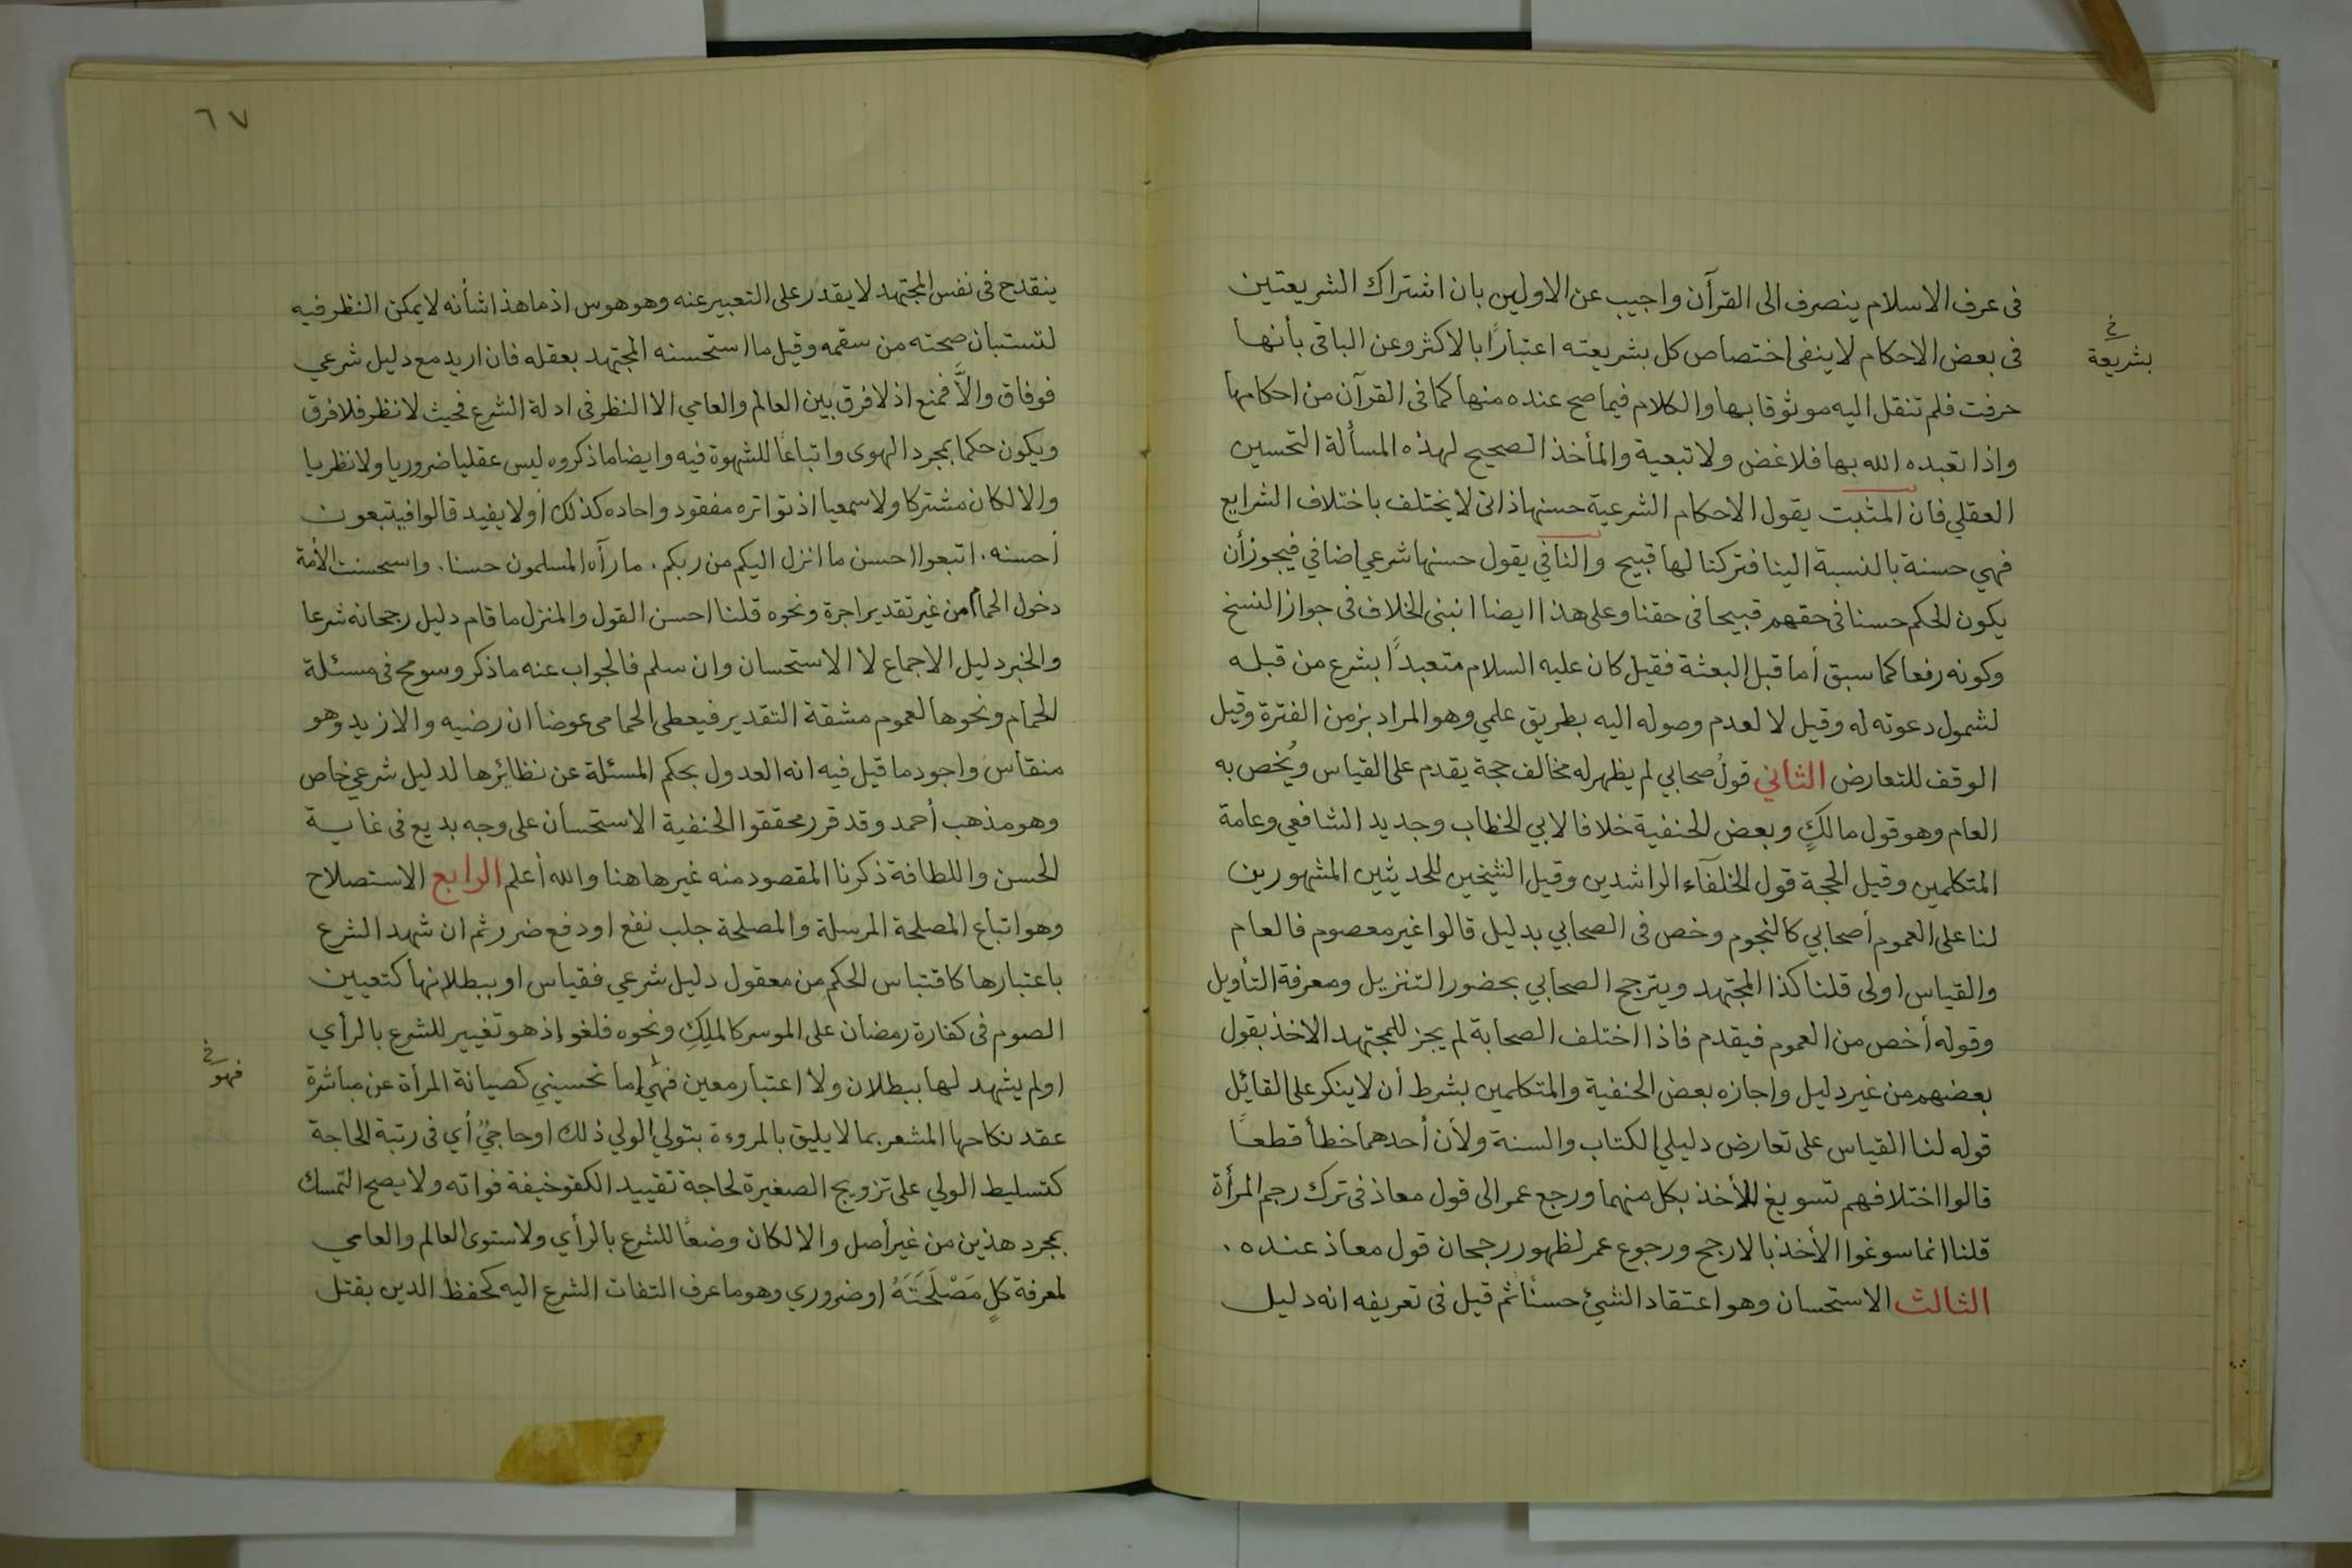 فى عرف الاسلام ينصرف الى القرآن واجيب عن الاولين بان اشتراك الشريعتين
فى بعض الاحكام لا ينفى اختصاص كل بشريعته اعتبارًا بالاكثر وعن الباقى بأنها
خ
بشريعة
حرفت فلم تنقل اليه موثوقا بها والكلام فيما صح عنده منها كما فى القرآن من احكامها
واذا تعبده الله بها فلا غض ولا تبعية والمأخذ الصحيح لهذه المسألة التحسين
العقلي فان المثبت يقول الاحكام الشرعية حسنها ذاتى لا يختلف باختلاف الشرايع
فهي حسنة بالنسبة الينا فتركنا لها قبيح والنافي يقول حسنها شرعي اضافي فيجوز أن
يكون الحكم حسنا فى حقهم قبيحا فى حقنا وعلى هذا ايضا انبنى الخلاف فى جواز النسخ
وكونه رفعا كما سبق أما قبل البعثة فقيل كان عليه السلام متعبدًا بشرع من قبله
لشمول دعوته له وقيل لا لعدم وصوله اليه بطريق علمي وهو المراد بزمن الفترة وقيل
الوقف للتعارض الثاني قولُ صحابي لم يظهر له مخالف حجة يقدم على القياس ويُخص به
العام وهو قول مالكٍ وبعض الحنفية خلافا لابي الخطاب وجديد الشافعي وعامة
المتكلمين وقيل الحجة قول الخلفآء الراشدين وقيل الشيخين للحديثين المشهورين
لنا على العموم أصحابي كالنجوم وخص فى الصحابي بدليل قالوا غير معصوم فالعام
والقياس اولى قلنا كذا المجتهد ويترجح الصحابي بحضور التنزيل ومعرفة التأويل
وقوله أخص من العموم فيقدم فاذا اختلف الصحابة لم يجز للمجتهد الاخذ بقول
بعضهم من غير دليل واجازه بعض الحنفية والمتكلمين بشرط أن لا ينكر على القائل
قوله لنا القياس على تعارض دليلي الكتاب والسنة ولأن أحدهما خطأ قطعًا
قالوا اختلافهم تسويغ للأخذ بكل منهما ورجع عمر الى قول معاذ فى ترك رجم المرأة
قلنا انما سوغوا الأخذ بالارجح ورجوع عمر لظهور رجحان قول معاذ عنده .
الثالث الاستحسان وهو اعتقاد الشيئ حسنًا ثم قيل فى تعريفه انه دليل
٦٧
ينقدح فى نفس المجتهد لا يقدر على التعبير عنه وهو هوس اذ ما هذا شأنه لا يمكن النظر فيه
لتستبان صحته من سقمه وقيل ما استحسنه المجتهد بعقله فان اريد مع دليل شرعي
فوفاق والَّا فمنع اذ لا فرق بين العالم والعامي الا النظر فى ادلة الشرع فحيث لا نظر فلا فرق
ويكون حكما بمجرد الهوى واتباعًا للشهوة فيه وايضا ما ذكروه ليس عقليا ضروريا ولا نظريا
والا لكان مشتركا ولا سمعيا اذ تواتره مفقود واحاده كذلك أو لا يفيد قالوا فيتبعون
أحسنه . اتبعوا احسن ما انزل اليكم من ربكم . ما رآه المسلمون حسنا . واستحسنت الأمة
دخول الحمام من غير تقدير اجرة ونحوه قلنا احسن القول والمنزل ما قام دليل رجحانه شرعا
والخبر دليل الاجماع لا الاستحسان وان سلم فالجواب عنه ما ذكر وسومح فى مسئلة
الحمام ونحوها لعموم مشقة التقدير فيعطى الحمامى عوضا ان رضيه والا زيد وهو
منقاس واجود ما قيل فيه انه العدول بحكم المسئلة عن نظائرها لدليل شرعي خاص
وهو مذهب أحمد وقد قرر محققوا الحنفية الاستحسان على وجه بديع فى غاية
الحسن واللطافة ذكرنا المقصود منه غير هاهنا والله أعلم الرابع الاستصلاح
وهو اتباع المصلحة المرسلة والمصلحة جلب نفع او دفع ضرر ثم ان شهد الشرع
باعتبارها كاقتباس الحكم من معقول دليل شرعي فقياس او ببطلانها كتعيين
الصوم فى كفارة رمضان على الموسر كالملِكِ ونحوه فلغو إذ هو تغيير للشرع بالرأي
او لم يشهد لها ببطلان ولا اعتبار معين فهي إما تحسيني كصيانة المرأة عن مباشرة
خ
فهو
عقد نكاحها المشعر بما لا يليق بالمروءة بتولي الولي ذلك او حاجيٌ أي فى رتبة الحاجة
كتسليط الولي على تزويج الصغيرة لحاجة تقييد الكفو خيفة فواته ولا يصح التمسك
بمجرد هذين من غير أصل والا لكان وضعًا للشرع بالرأي ولاستوى العالم والعامي
لمعرفة كلٍ مَصْلَحَتَهُ او ضروري وهو ما عرف التفات الشرع اليه كحفظ الدين بقتل